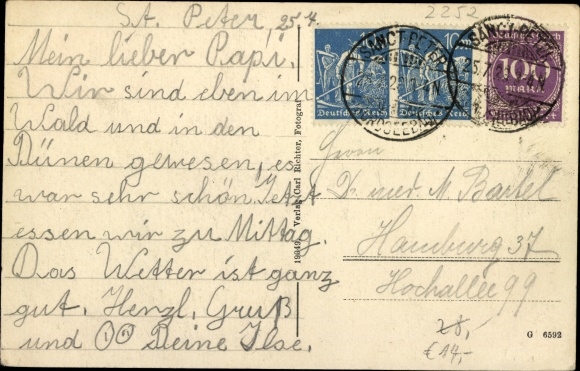 2252
St. Peter, 25.7.
Mein lieber Papi.
Wir sind eben im
Wald und in den
Dünen gewesen, es
war sehr schön. Jetzt
essen wir zu Mittag.
Das Wetter ist ganz
gut. Herzl. Gruß
und Deine Ilse.
19649. Verlag Carl Richter, Fotograf
10
10
Deutsches Reich
Deutsches Reich
SANCT PETER
(NORDSEEBAD)
SANCT PETER
100
mark
Herrn
Dr. med. M. Bartel
Hamburg 37
Hochallee 99
28,-
€ 14,-
G 6592